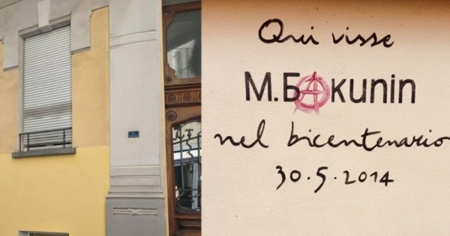 Qui visse
M.БAkunin
nel bicentenario
30.5.2014